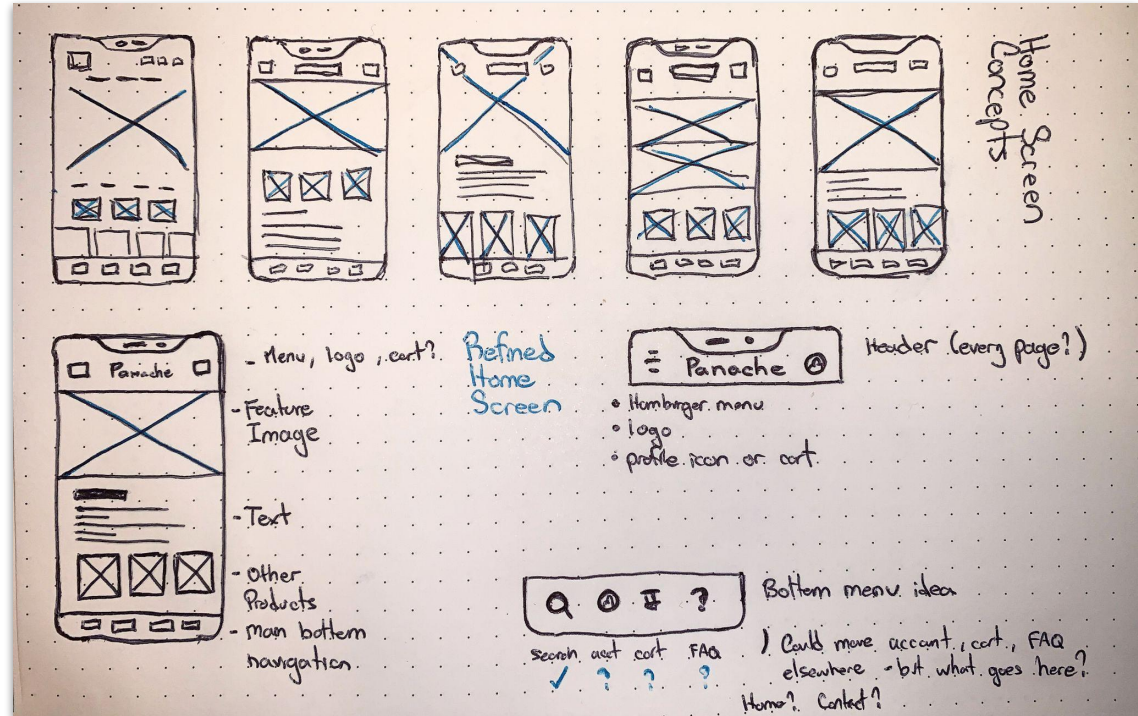 Home Screen
Concepts
Panaché
- Menu, logo, cart?
- Feature
Image
- Text
- Other
Products
- main bottom
navigation
Refined
Home
Screen
Panache
Header (every page?)
• Hamburger menu
• logo
• profile icon or cart
?
search acct cart FAQ
✓ ? ? ?
Bottom menu idea
) Could move account, cart, FAQ
elsewhere - but what goes here?
Home? Contact?